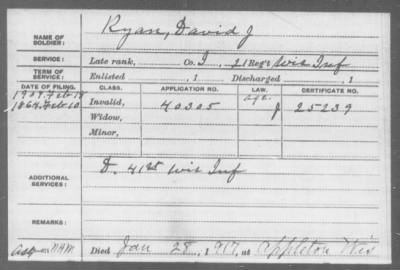 NAME OF SOLDIER: Ryan, David J
SERVICE: Late rank, Co. I, 21 Reg't Wis Inf
TERM OF SERVICE: Enlisted , 1 Discharged , 1
DATE OF FILING. CLASS. APPLICATION NO. LAW. CERTIFICATE NO.
1907. Feb 18 Age
1864. Feb 10 Invalid, 40305 J 25239
Widow,
Minor,
ADDITIONAL SERVICES: D. 41st Wis Inf
REMARKS:
Died Jan 28, 1917, at Appleton Wis